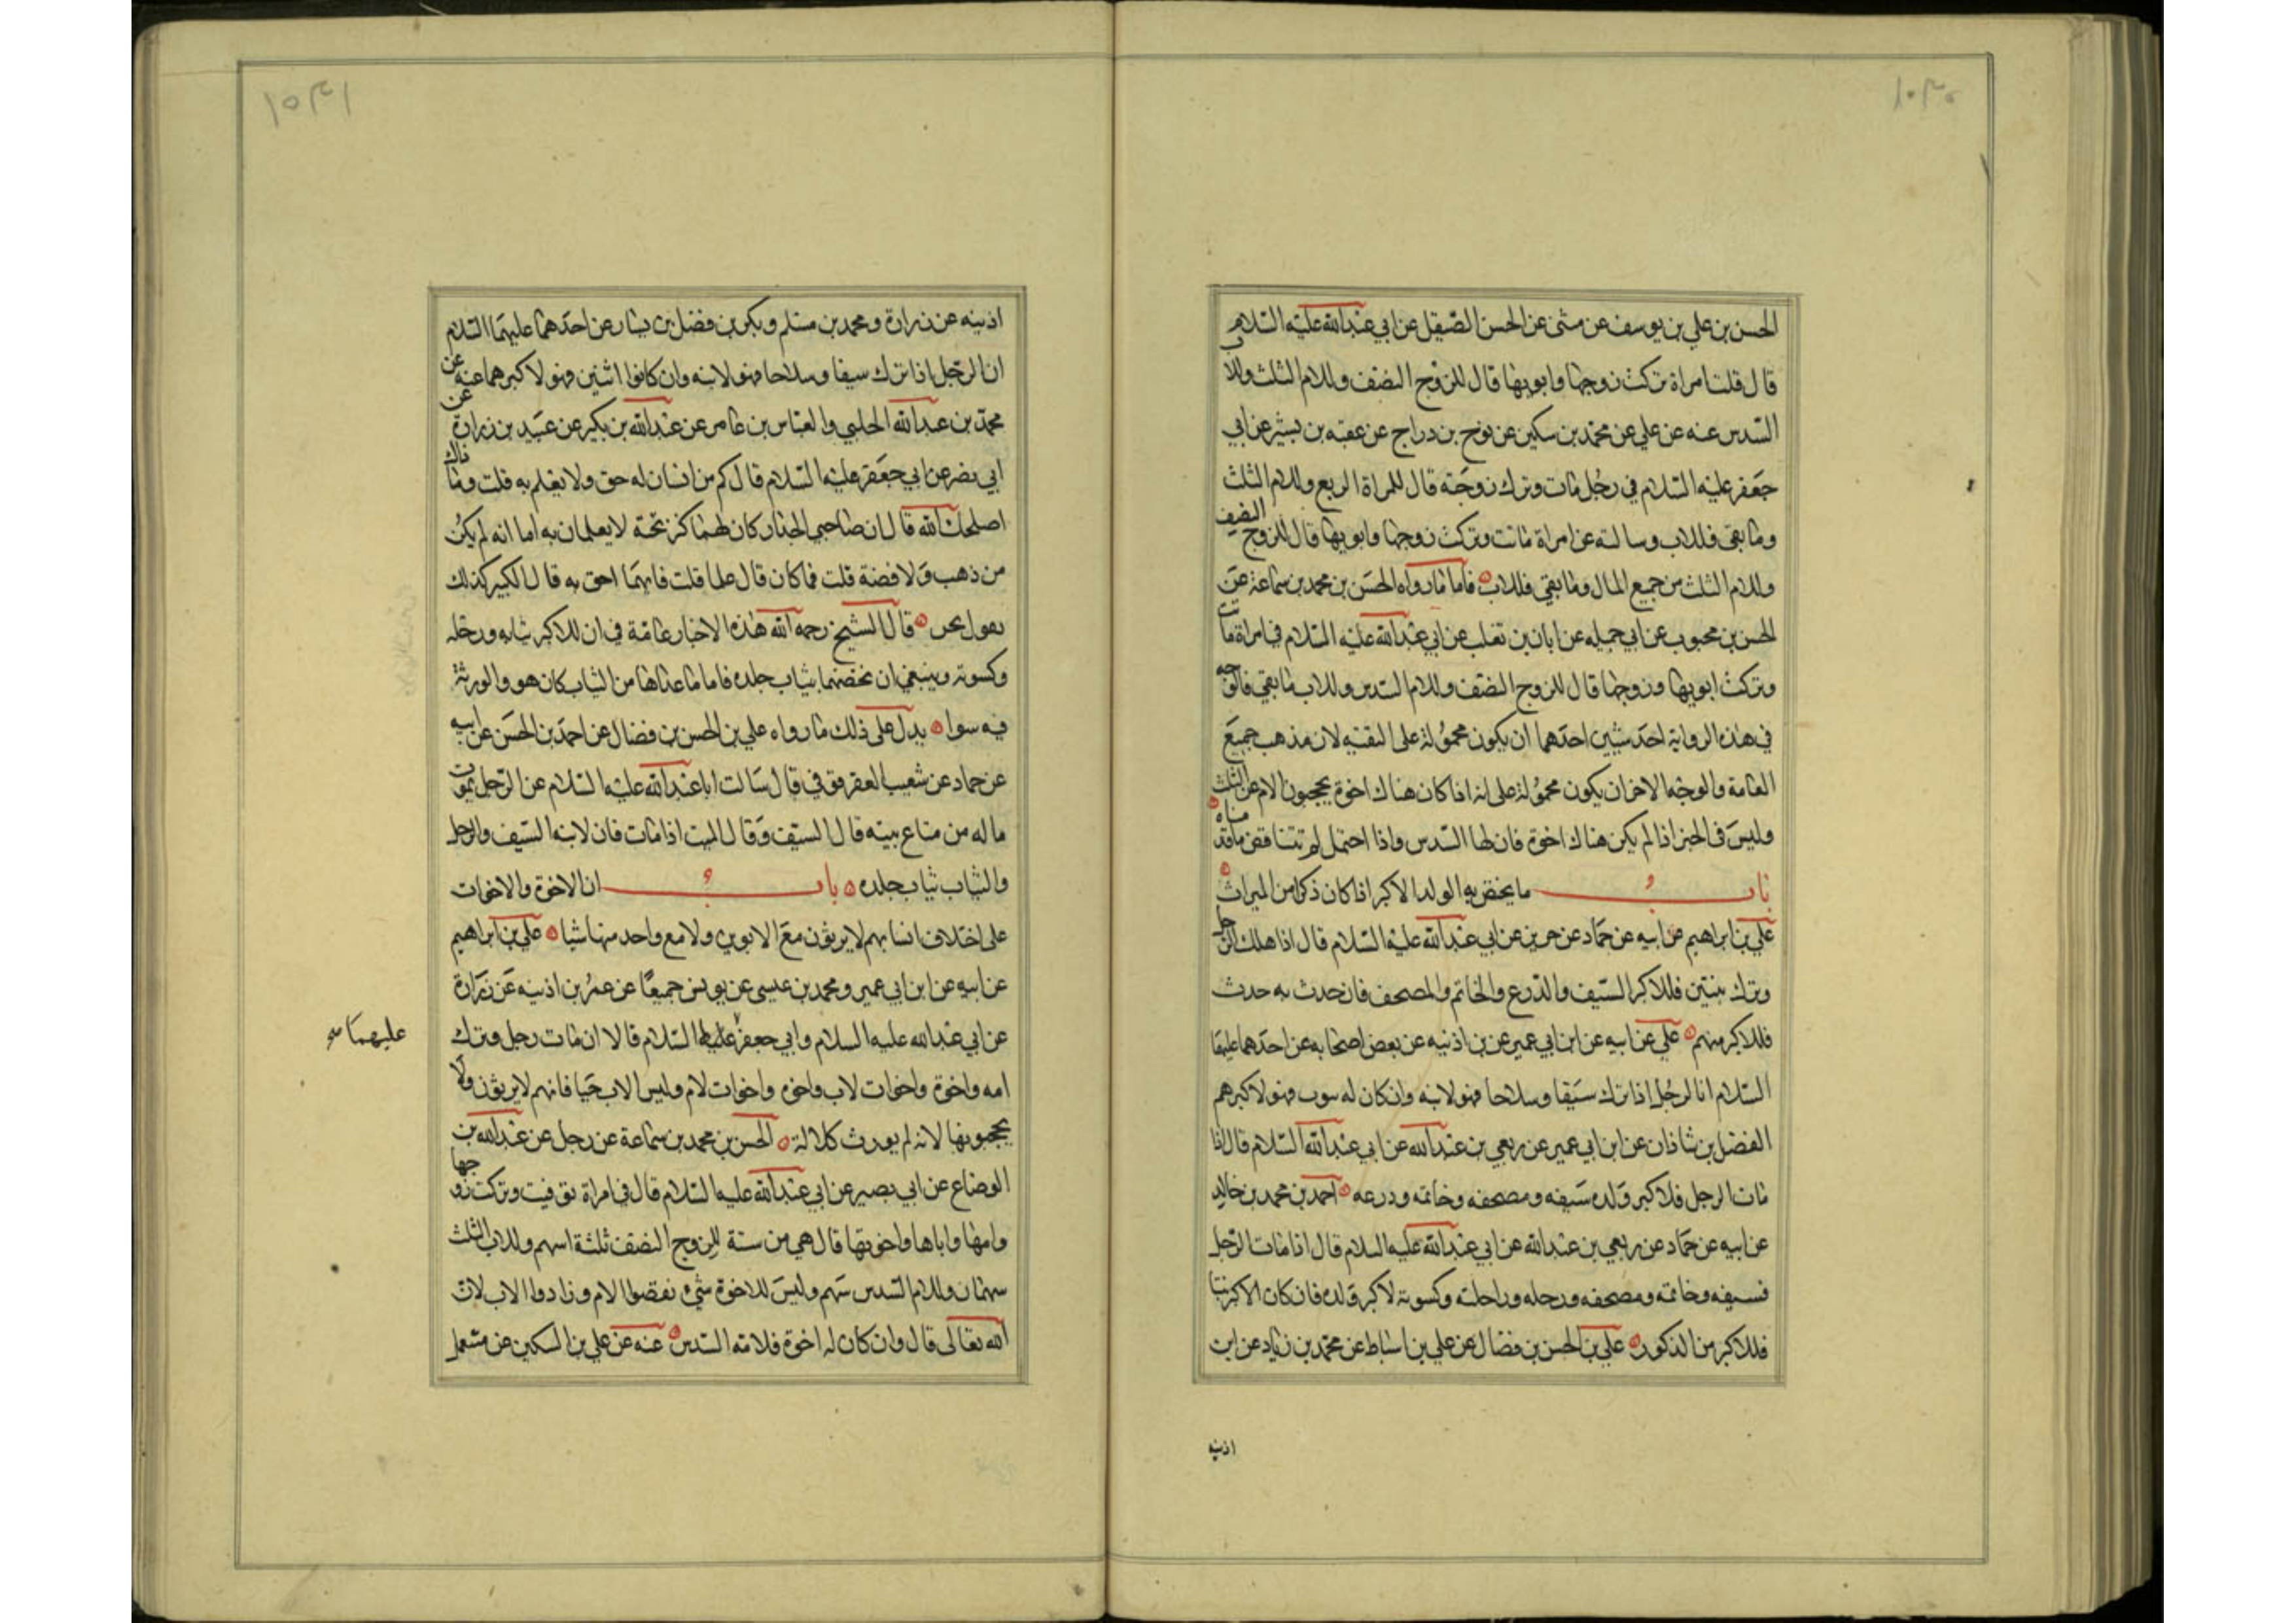 ١٠٣٠
الحسن بن علي بن يوسف عن مثنى عن الحسن الصيقل عن ابي عبدالله عليه السلام
قال قلت امراة تركت زوجها وابويها قال للزوج النصف وللام الثلث وللاب
السدس عنه عن علي عن محمد بن سكين عن نوح بن دراج عن عقبه بن بشير عن ابي
جعفر عليه السلام في رجل مات وترك زوجته قال للمراة الربع وللام الثلث
وما بقي فللاب وسالته عن امراة ماتت وتركت زوجها وابويها قال للزوج النصف
وللام الثلث من جميع المال وما بقي فللاب فاما ما رواه الحسن بن محمد بن سماعة عن
الحسن بن محبوب عن ابي جميله عن ابان بن تغلب عن ابي عبدالله عليه السلام في امراة ماتت
وتركت ابويها وزوجها قال للزوج النصف وللام السدس وللاب ما بقي فالوجه
في هذه الرواية احد شيئين احدهما ان يكون محمولة على التقيه لان مذهب جميع
العامة والوجه الاخر ان يكون محمولة على انه اذا كان هناك اخوة يحجبون الام عن الثلث
وليس في الخبر اذا لم يكن هناك اخوة فان لها السدس واذا احتمل لم تتناقض ما قدمناه
باب ما يختص به الولد الاكبر اذا كان ذكرا من الميراث
علي بن ابراهيم عن ابيه عن حماد عن حريز عن ابي عبدالله عليه السلام قال اذا هلك الرجل
وترك بنتين فللاكبر السيف والدرع والخاتم والمصحف فان حدث به حدث
فللاكبر منهم علي عن ابيه عن ابن ابي عمير عن بن اذنيه عن بعض اصحابه عن احدهما عليهما
السلام ان الرجل اذا ترك سيفا وسلاحا فهو لابنه وان كان له بنون فهو لاكبرهم
الفضل بن شاذان عن ابن ابي عمير عن ربعي بن عبدالله عن ابي عبدالله السلام قال اذا
مات الرجل فلاكبر ولده سيفه ومصحفه وخاتمه ودرعه احمد بن محمد بن خالد
عن ابيه عن حماد عن ربعي بن عبدالله عن ابي عبدالله عليه السلام قال اذا مات الرجل
فسيفه وخاتمه ومصحفه ورحله وراحلته وكسوته لاكبر ولده فان كان الاكبر بنتا
فللاكبر من الذكور علي بن الحسن بن فضال عن علي بن اسباط عن محمد بن زياد عن ابن
اذنيه
١٠٣١
اذنيه عن زرارة ومحمد بن مسلم وبكير بن فضل بن يسار عن احدهما عليهما السلام
ان الرجل اذا ترك سيفا وسلاحا فهو لابنه وان كانوا اثنين فهو لاكبرهما عنه عن
محمد بن عبدالله الحلبي والعباس بن عامر عن عبدالله بن بكير عن عبيد بن زرارة عن
ابي بصير عن ابي جعفر عليه السلام قال كم من انسان له حق ولا يعلم به قلت وما ذاك
اصلحك الله قال ان صاحبي الجدار كان لهما كنز تحته لا يعلمان به اما انه لم يكن
من ذهب ولا فضة قلت فما كان قال علما قلت فايهما احق به قال الكبير كذلك
نقول نحن قال الشيخ رحمه الله هذه الاخبار عامة في ان للاكبر ثيابه ورحله
وكسوته وينبغي ان نخصها بثياب جلده فاما ما عداها من الثياب كان هو والورثة
فيه سوا يدل على ذلك ما رواه علي بن الحسن بن فضال عن احمد بن الحسن عن ابيه
عن حماد عن شعيب العقرقوفي قال سالت ابا عبدالله عليه السلام عن الرجل يموت
ماله من متاع بيته قال السيف وقال الميت اذا مات فان لابنه السيف والرحل
والثياب ثياب جلده باب ان الاخوة والاخوات
على اختلاف انسابهم لا يرثون مع الابوين ولا مع واحد منها شيا علي بن ابراهيم
عن ابيه عن ابن ابي عمير ومحمد بن عيسى عن يونس جميعا عن عمر بن اذنيه عن زرارة
عن ابي عبدالله عليه السلام وابي جعفر عليهما السلام قالا ان مات رجل وترك
عليهما
امه واخوة واخوات لاب واخوه واخوات لام وليس الاب حيا فانهم لا يرثون ولا
يحجبونها لانه لم يورث كلالة الحسن بن محمد بن سماعة عن رجل عن عبدالله بن
الوضاع عن ابي بصير عن ابي عبدالله عليه السلام قال في امراة توفيت وتركت زوجها
وامها واباها واخوتها قال هي من ستة للزوج النصف ثلثة اسهم وللاب الثلث
سهمان وللام السدس سهم وليس للاخوة شيء نقصوا الام وزادوا الاب لان
الله تعالى قال وان كان له اخوة فلامه السدس عنه عن علي بن السكين عن مشمعل